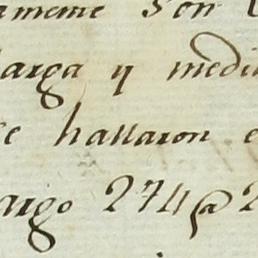 amente son
larga y medi
se hallaron e
argo 274 @ 2